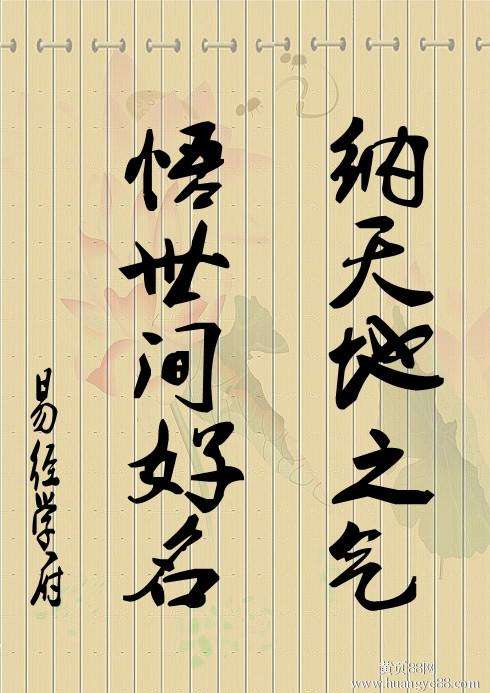 纳天地之气
悟世间好名
易经学府
黄页88网
www.huangye88.com